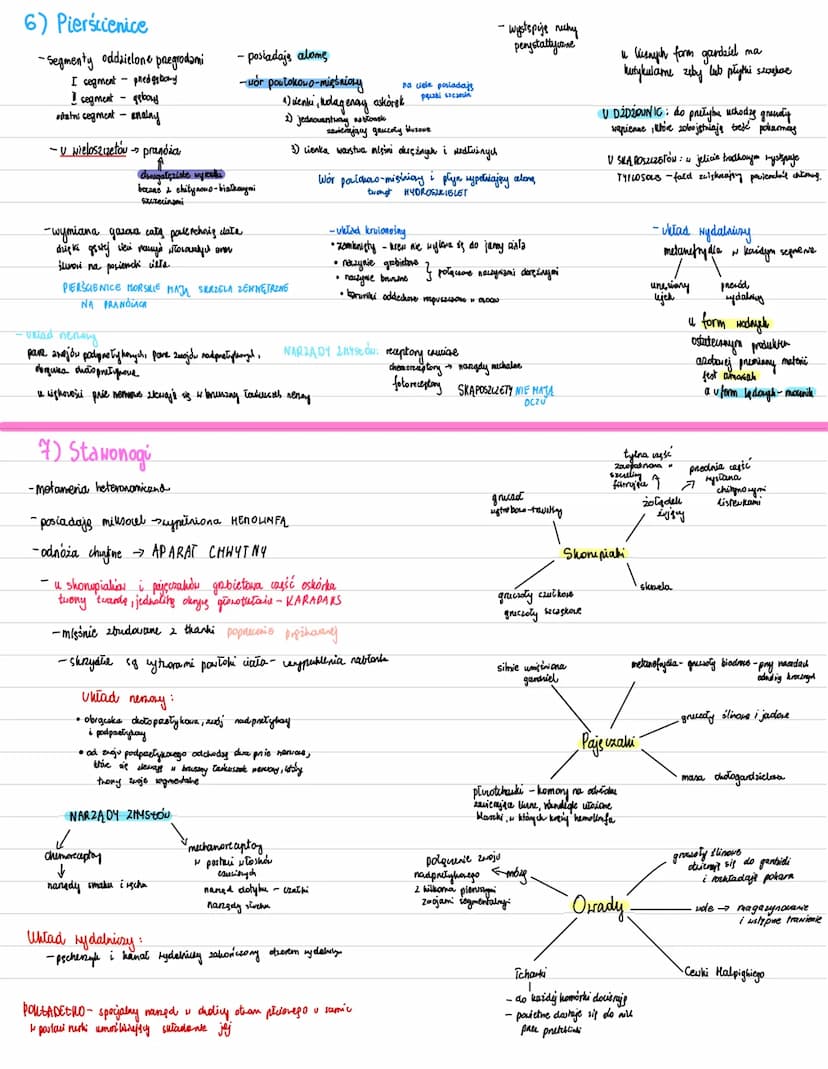 6) Pierścienice
- segmenty oddzielone przegrodami
I segment - przedgębowy
II segment - gębowy
ostatni segment - analny
- u wieloszczetów → pranóża
dwugałęziste wyrostki
boczne z chitynowo-białkowymi
szczecinami
- posiadają celomę
- wór powłokowo-mięśniowy
1) cienki, kolagenowy oskórek
2) jednowarstwowy nabłonek
zawierający gruczoły śluzowe
3) cienka warstwa mięśni okrężnych i podłużnych
na ciele posiadają
pęczki szczecin
Wór powłokowo-mięśniowy i płyn wypełniający celomę
tworzą HYDROSZKIELET
- występują ruchy
perystaltyczne
u licznych form gardziel ma
kutykularne zęby lub płytki szczękowe
U DŻDŻOWNIC: do przełyku uchodzą gruczoły
wapienne, które zobojętniają treść pokarmową
U SKĄPOSZCZETÓW: w jelicie środkowym występuje
TYFLOSOLIS - fałd zwiększający powierzchnię chłonną.
- wymiana gazowa całą powierzchnią ciała
dzięki gęstej sieci naczyń włosowatych oraz
śluzowi na powierzchni ciała.
PIERŚCIENICE MORSKIE MAJĄ SKRZELA ZEWNĘTRZNE
NA PRANÓŻACH
- układ krwionośny
• zamknięty - krew nie wylewa się do jamy ciała
• naczynie grzbietowe
• naczynie brzuszne
połączone naczyniami okrężnymi
• barwniki oddechowe rozpuszczone w osoczu
- układ wydalniczy
metanefrydia w każdym segmencie
urzęsiony
lejek
przewód
wydalniczy
u form wodnych
ostatecznym produktem
azotowej przemiany materii
jest amoniak
a u form lądowych - mocznik
- układ nerwowy
para zwojów podprzełykowych, para zwojów nadprzełykowych,
obrączka okołoprzełykowa
u większości pnie nerwowe zlewają się w brzuszny łańcuszek nerwowy
NARZĄDY ZMYSŁÓW: receptory czuciowe
chemoreceptory → narządy nuchalne
fotoreceptory
SKĄPOSZCZETY NIE MAJĄ
OCZU
7) Stawonogi
- metameria heteronomiczna
- posiadają miksocel → wypełniona HEMOLINFĄ
- odnóża chwytne → APARAT CHWYTNY
- u skorupiaków i pajęczaków grzbietowa część oskórka
tworzy twardą, jednolitą okrywę głowotułowia - KARAPAKS
- mięśnie zbudowane z tkanki poprzecznie prążkowanej
- skrzydła są wytworami powłoki ciała - uwypuklenia nabłonka
Układ nerwowy:
• obrączka okołoprzełykowa, zwój nadprzełykowy
i podprzełykowy
• od zwoju podprzełykowego odchodzą dwa pnie nerwowe,
które się zlewają w brzuszny łańcuszek nerwowy, który
tworzy zwoje segmentalne
NARZĄDY ZMYSŁÓW
chemoreceptory
narządy smaku i węchu
mechanoreceptory
w postaci włosków
czuciowych
narząd dotyku - czułki
narządy słuchu
Układ wydalniczy:
- pęcherzyk i kanał wydalniczy zakończony otworem wydalniczym
POKŁADEŁKO - specjalny narząd w okolicy otworu płciowego u samic
w postaci rurki umożliwiający składanie jaj
Skorupiaki
gruczoł
wątrobowo-trzustkowy
tylna część
zaopatrzona w
szczeliny
filtrujące
przednia część
wysłana
chitynowymi
listewkami
żołądek
żujący
skrzela
gruczoły czułkowe
gruczoły szczękowe
Pajęczaki
silnie umięśniona
gardziel
metanefrydia - gruczoły biodrowe - przy nasadach
odnóży krocznych
gruczoły ślinowe i jadowe
masa okołogardzielowa
płucotchawki - komory na odwłoku
zawierające liczne, równolegle ułożone
blaszki, w których krąży hemolinfa
Owady
połączenie zwoju
nadprzełykowego
z kilkoma pierwszymi
zwojami segmentalnymi
mózg
gruczoły ślinowe
otwierają się do gardzieli
i rozkładają pokarm
wole → magazynowanie
i wstępne trawienie
Cewki Malpighiego
Tchawki
- do każdej komórki docierają
- powietrze dostaje się do nich
przez przetchlinki